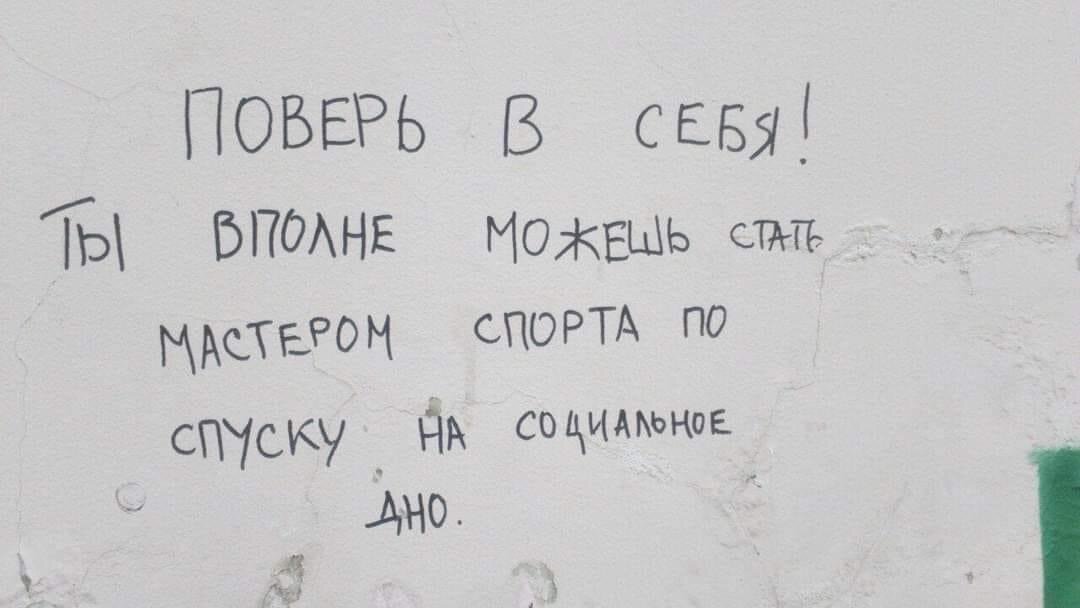 ПОВЕРЬ В СЕБЯ!
ТЫ ВПОЛНЕ МОЖЕШЬ СТАТЬ
МАСТЕРОМ СПОРТА ПО
СПУСКУ НА СОЦИАЛЬНОЕ
ДНО.